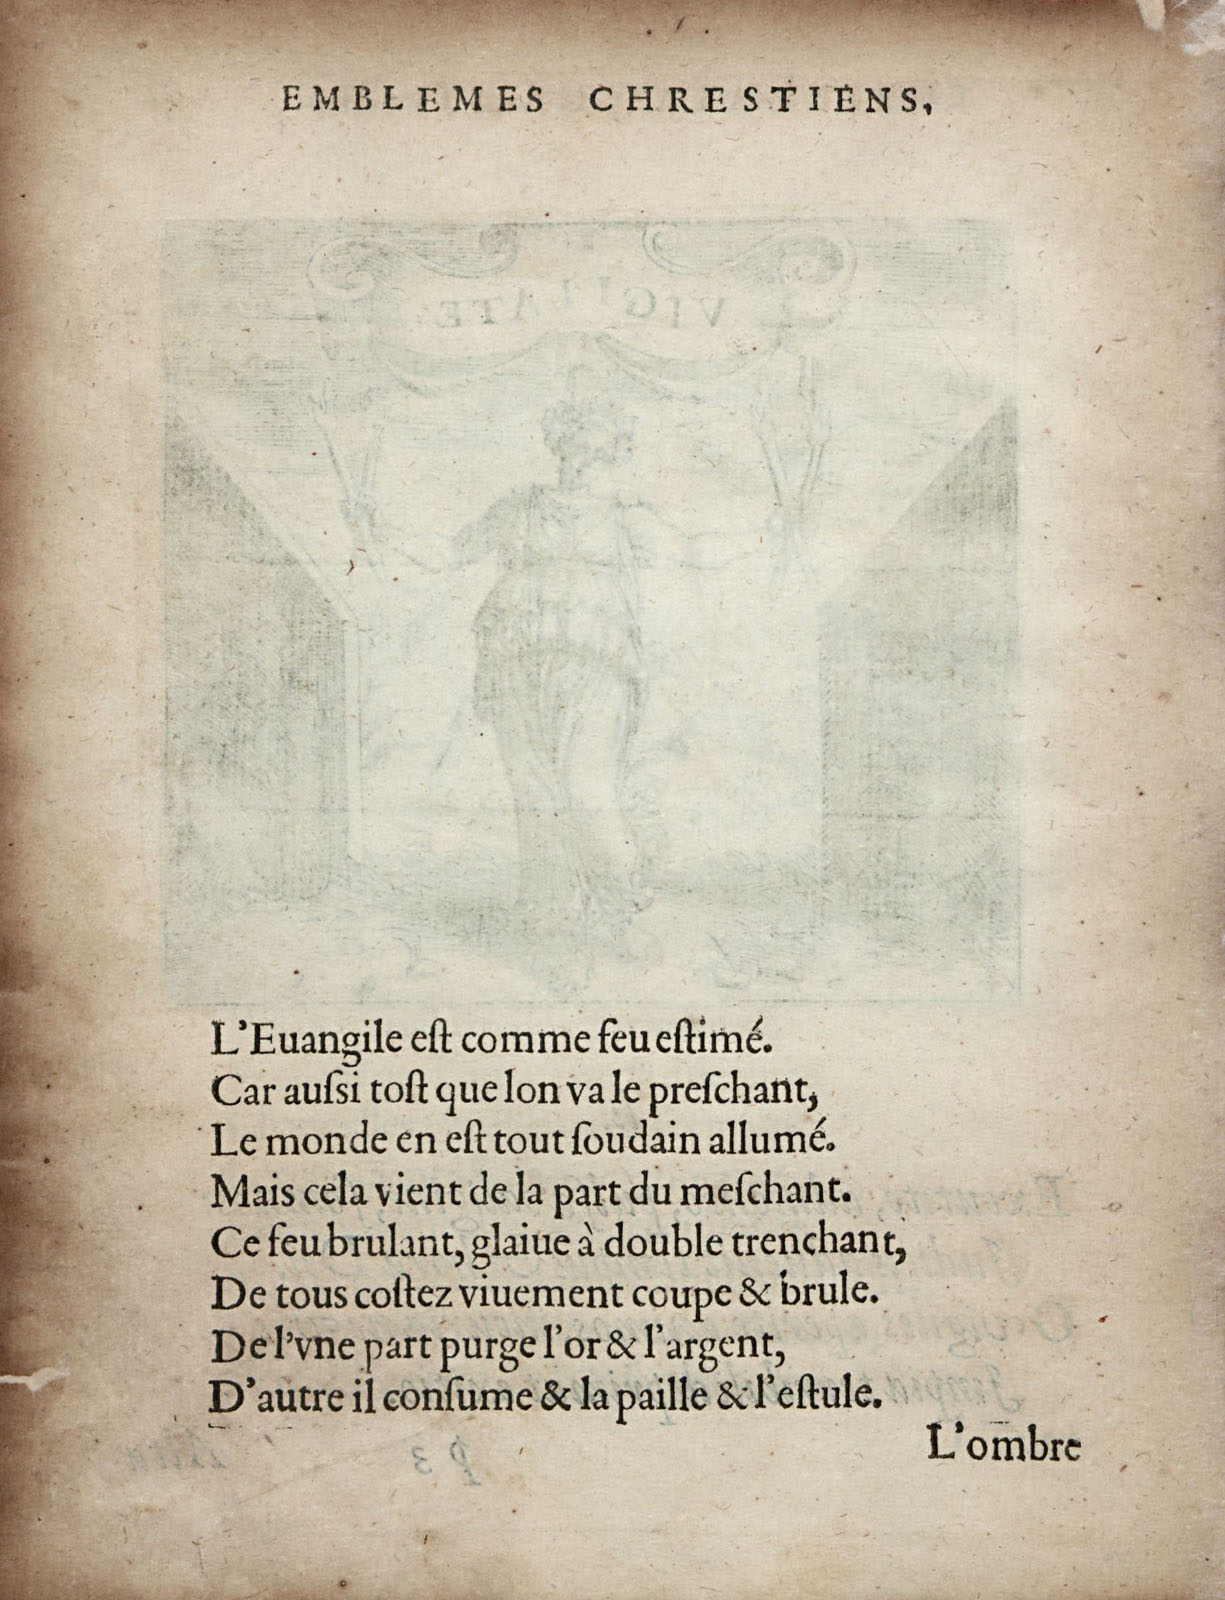 EMBLEMES CHRESTIENS,
VIGILATE.
L'Euangile eſt comme feu eſtimé.
Car auſsi toſt que lon va le preſchant,
Le monde en eſt tout ſoudain allumé.
Mais cela vient de la part du meſchant.
Ce feu brulant, glaiue à double trenchant,
De tous coſtez viuement coupe & brule.
De l'vne part purge l'or & l'argent,
D'autre il conſume & la paille & l'eſtule.
L'ombre
p 3